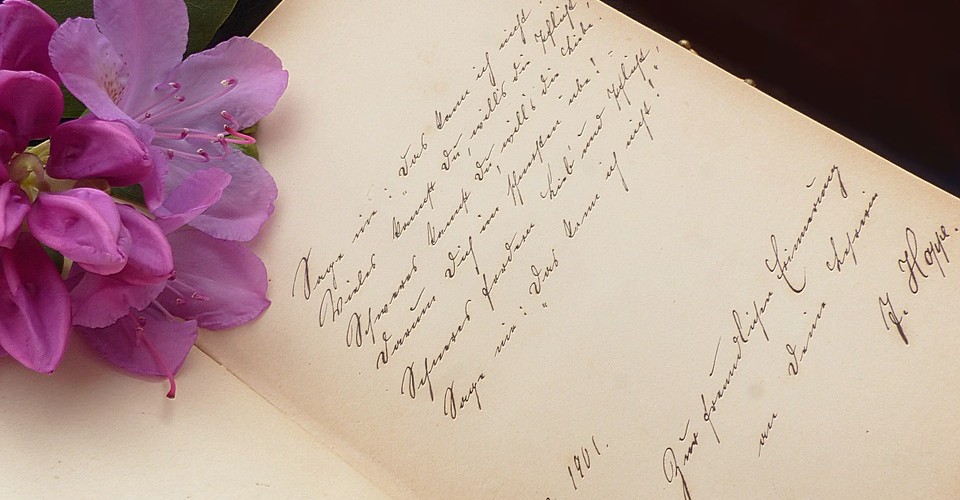 Sage nie: „Das kann ich nicht“
Vieles kannst Du, will's die Pflicht,
Schweres kannst Du, will's die Liebe.
Darum Dich im Schwersten übe!
Schweres fordern Lieb' und Pflicht,
Sage nie: „Das kann ich nicht!“
Zur freundlichen Erinnerung
an Deine
F. Hoppe.
1901.